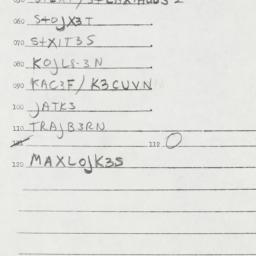 060 S+OJX3T
070 S+XIT3S
080 KOJL8-3N
090 KAC3F/K3CUVN
100 JATK3
110 TRAJB3RN
119 O
120 MAXLOJK3S